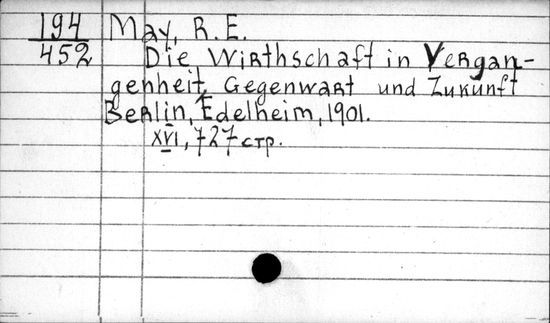 194 May, R. E.
452 Die Wirthschaft in Vergan-
genheit, Gegenwart und Zukunft
Berlin, Edelheim, 1901.
XVI, 727 стр.